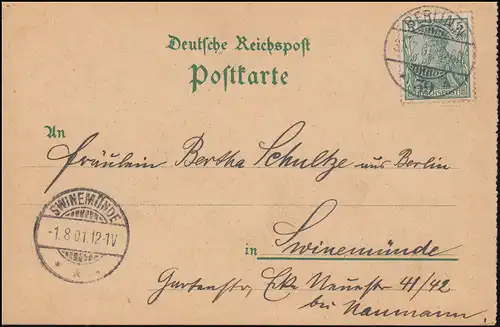 Deutsche Reichspost
Postkarte
BERLIN
REICHSPOST
An
Fräulein Bertha Schultze aus Berlin
SWINEMÜNDE
-1.8.01.12-1V
in Swinemünde
Gartenstr, Ecke Neuestr 41/42
bei Naumann